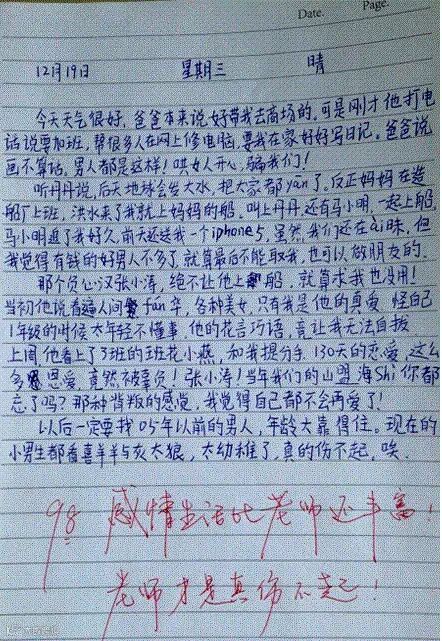 Date.
Page.
12月19日 星期三 晴
今天天气很好,爸爸本来说好带我去商场的,可是刚才他打电
话说要加班,帮很多人在网上修电脑,要我在家好好写日记。爸爸说
画不算话,男人都是这样!哄女人开心,骗我们!
听丹丹说,后天地球会发大水,把大家都yān了。反正妈妈在造
船厂上班,洪水来了我就上妈妈的船。叫上丹丹,还有马小明,一起上船。
马小明追了我好久,前天还送我一个iphone5,虽然我们还在ài昧,但
我觉得有钱的好男人不多了,就算最后不能取我,也可以做朋友的。
那个负心汉张小涛,绝不让他上船,就算求我也没用!
当初他说看遍人间fán华,各种美女,只有我是他的真爱,怪自己
1年级的时候太年轻不懂事,他的花言巧语,竟让我无法自拔
上周他看上了3班的班花小燕,和我提分手,130天的恋爱,这么
多恩爱,竟然被辜负!张小涛!当年我们的山盟海Shi你都
忘了吗?那种背叛的感觉,我觉得自己都不会再爱了!
以后一定要找05年以前的男人,年龄大靠得住。现在的
小男生都看喜羊羊与灰太狼,太幼稚了,真的伤不起,唉
98 感情生活比老师还丰富!
老师才是真伤不起!